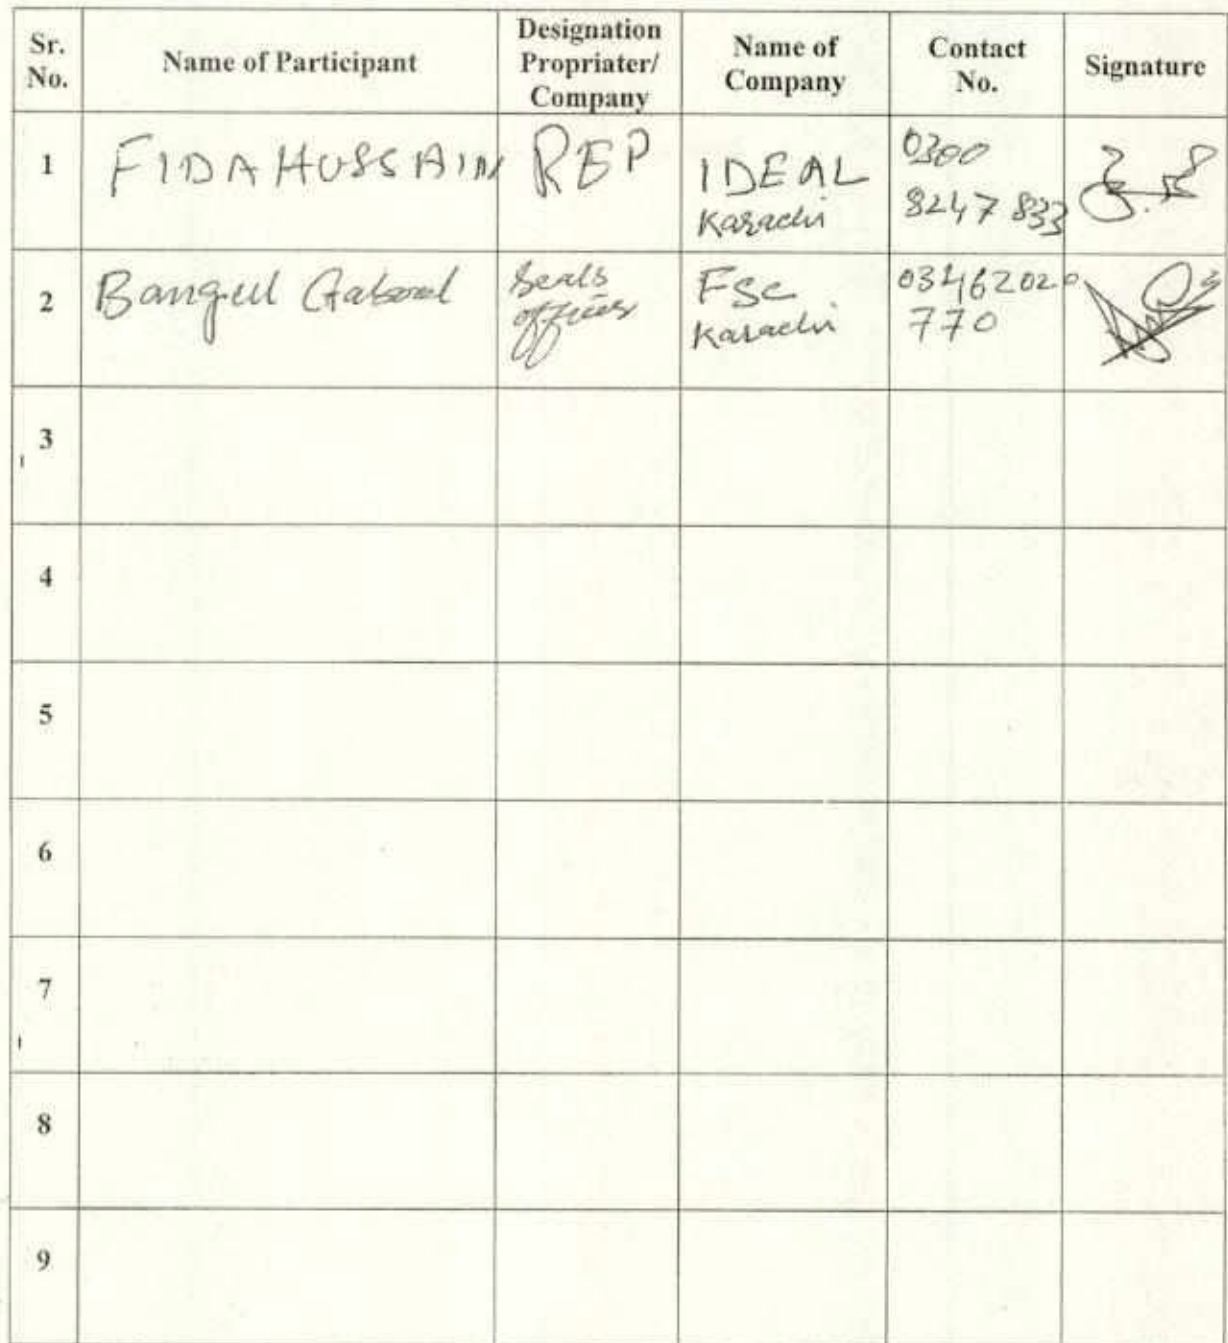 Sr. No.
Name of Participant
Designation Propriater/ Company
Name of Company
Contact No.
Signature
1
FIDA HUSSAIN
REP
IDEAL
Karachi
0300
8247 833
2
Bangul
Seals
officer
Fsc
Karachi
03462020
770
3
4
5
6
7
8
9